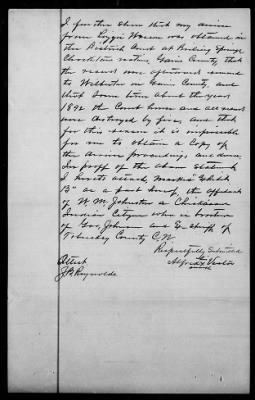 I further show that my divorce
from Lizzie Wason was obtained in
the District Court at Boiling Springs
Chickasaw nation, Gaines County, that
the records were afterwards removed
to Wilburton in Gaines County, and
that some time about the year
189 the Court house and all records
were destroyed by fire, and that
for this reason it is impossible
for me to obtain a Copy of
the divorce proceedings, and decree,
for proof of the above statement
I hereto attach, Marked Exhibit
"B" as a part hereof, the affidavit
of W. M. Johnston a Chickasaw
Indian Citizen who is brother
of Gov. Johnston and
Tobucksy County C.N.
Respectfully Submitted
Alfred
Attest
J. Reynolds